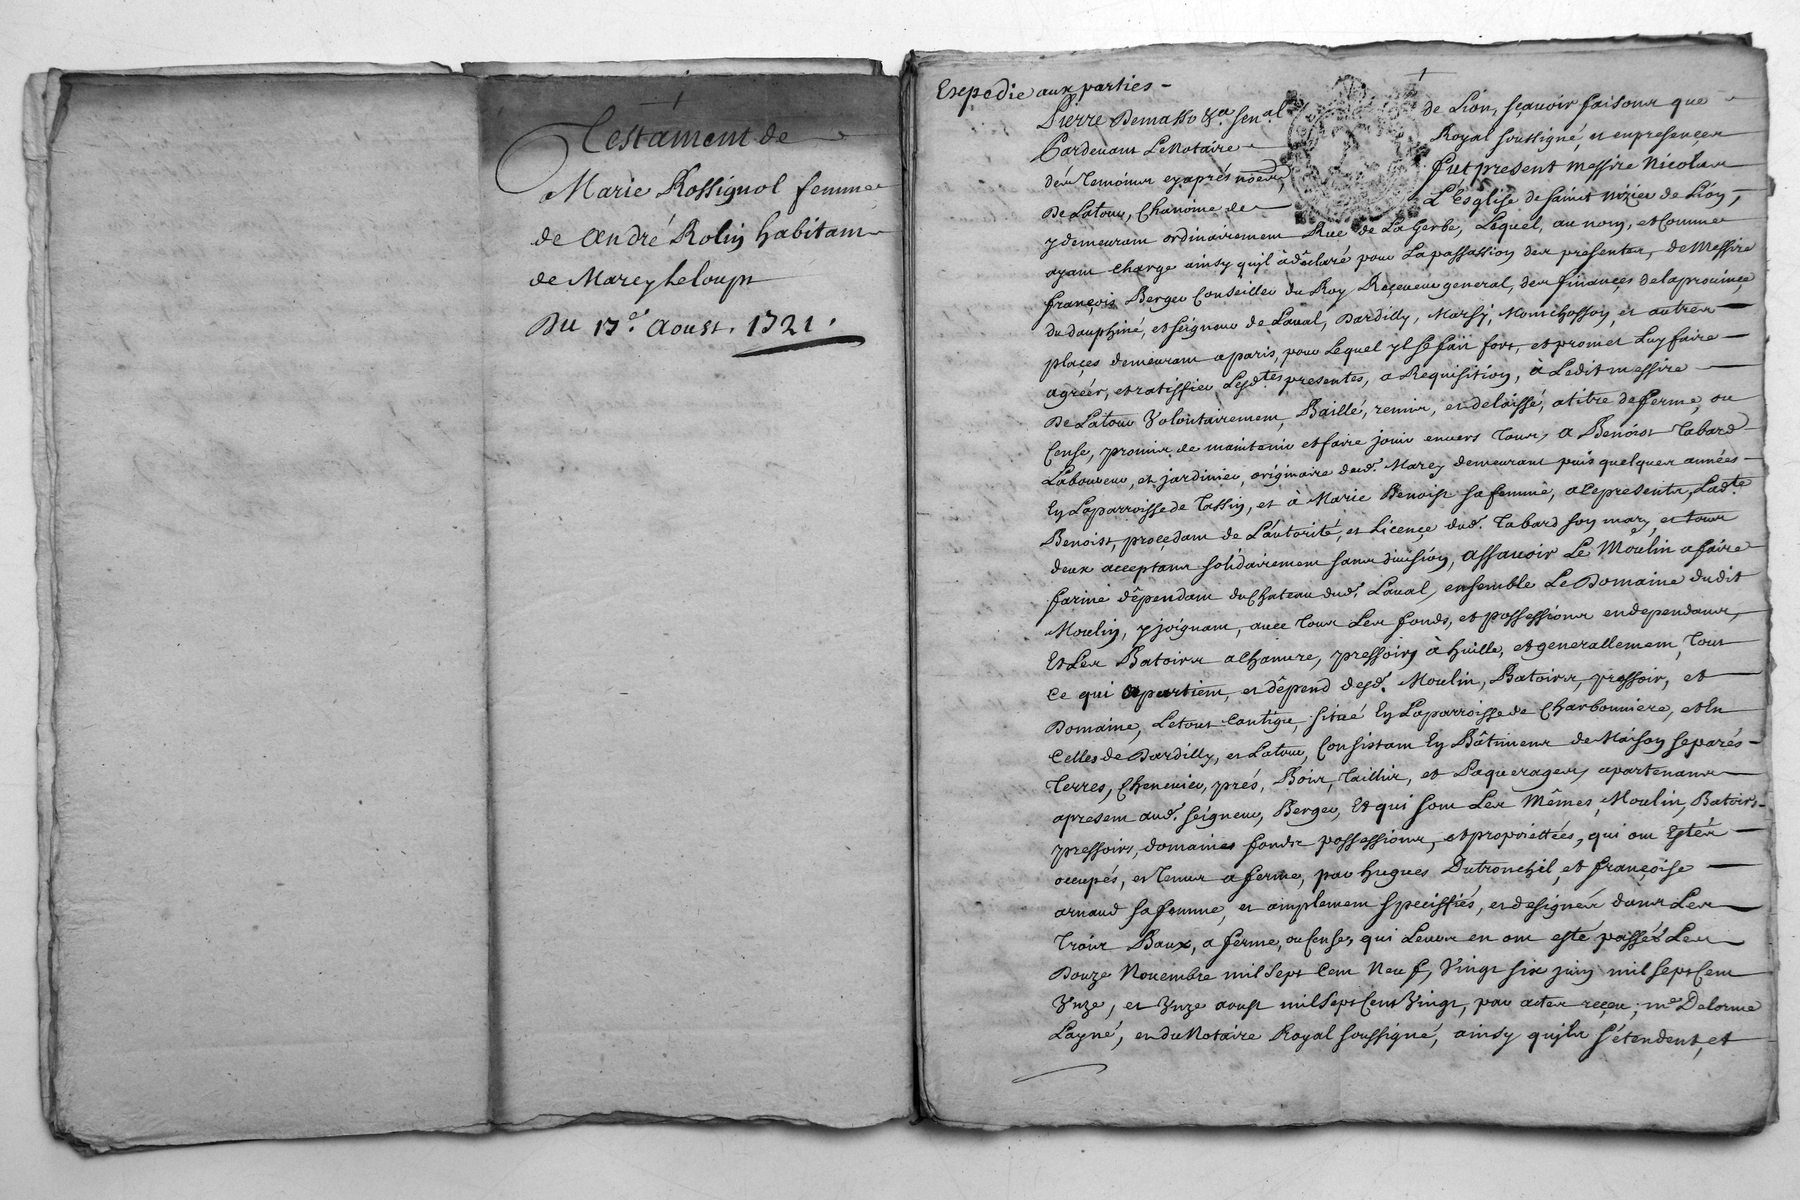 Testament de
Marie Rossignol femme
de André Rolin habitant
de Marcy Le loupt
Du 17e. Aoust. 1721.
Expedie aux parties -
Pierre Demasso &a. senal de Lion, sçavoir faisons que
Pardevant Le Notaire Royal soussigné, et en presence
des Temoins cy aprés només, fut present Messire Nicolas
De Latour, Chanoine de L'Esglise de saint Nizier de Lion,
y demeurant ordinairement Rue de La Gerbe, Lequel, au nom, et Comme
ayant charge ainsy qu'il à déclaré pour La passation des presentes, de Messire
françois Berger Conseiller du Roy Receveur general, des finances de la province
du dauphiné, et seigneur de Laval, Dardilly, Marsy, Montchosson, et autres
places demeurant a paris, pour Lequel yl se fait fort, et promet Luy faire
agréer, et ratiffier Lesdtes presentes, a Requisition, à Ledit messire
De Latour Volontairement, Baillé, remis, et delaissé, a titre de ferme, ou
Cense, promis de maintenir et faire jouir envers Tous, A Benoist Tabard
Laboureur, et jardinier, originaire dud. Marcy demeurant puis quelques années
En La parroisse de Tassin, et à Marie Benoist sa femme, a ce presents, Ladte
Benoist, procedant de L'autorité, et Licence dud. Tabard son mary, et tous
deux acceptans solidairement sans division, assavoir Le Moulin a faire
farine dépendant du Chateau dud. Laval, ensemble Le Domaine dudit
Moulin, y joignant, avec Tous Les fonds, et possessions en dependans,
Et Les Batoirs a Chanvre, pressoirs à huille, et generallement, Tout
Ce qui apartient, et dépend desd. Moulin, Batoirs, pressoir, et
Domaine, Le tout Contigu, situé En La parroisse de Charbonniere, et En
Celles de Dardilly, et Latour, Consistant En Bâtimens de Maison separés
Terres, Chenevier, prés, Bois, Taillis, et Paquerages, apartenans
a present aud. seigneur, Berger, Et qui sont Les Mêmes, Moulin, Batoirs
pressoirs, domaines fonds possessions, et proprietées, qui ont Estés
occupés, et Tenus a ferme, par hugues Dutronchil, et françoise
arnaud sa femme, et amplement speciffiés, et designés dans Les
Trois Baux, a ferme, ou Cense, qui Leur en ont esté passés Les
Douze Novembre mil sept Cent Neuf, Vingt six juin mil sept Cent
Unze, et Unze aoust mil sept Cent Vingt, par actes reçeu, me Delorme
Layné, et du Notaire Royal soussigné, ainsy qu'ils s'étendent, et